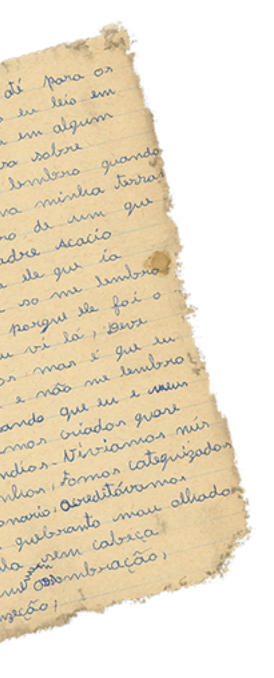 até para os
eu leio em
em algum
sobre
lembro quando
va minha terra
ro, de um que
adre Acacio
ele que ia
so me lembro
porque ele foi o
eu vi lá, Deve
os mas é que eu
e não me lembro
ando que eu e meus
mos criados quase
ndios. Viviamos nús
nhos, fomos catequizados
onario, acreditávamos
quebranto mau olhado
la sem cabeça
assombração,
zeção,